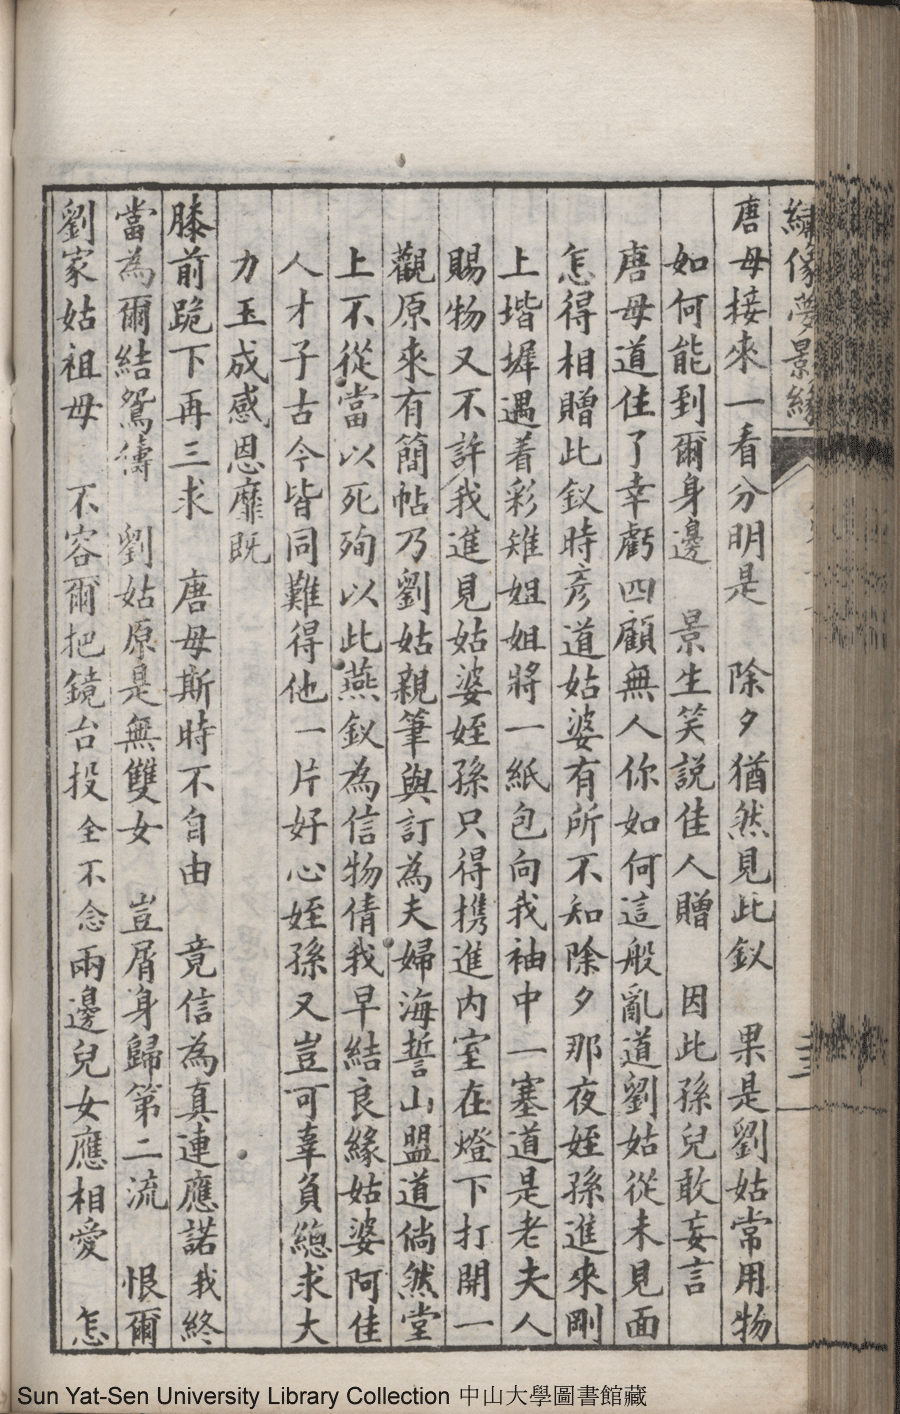 繡像夢景緣
唐母接來一看分明是　除夕猶然見此釵　果是劉姑常用物
如何能到爾身邊　景生笑説佳人贈　因此孫兒敢妄言
唐母道住了幸虧四顧無人你如何這般亂道劉姑從未見面
怎得相贈此釵時彥道姑婆有所不知除夕那夜姪孫進來剛
上堦墀遇着彩雉姐姐將一紙包向我袖中一塞道是老夫人
賜物又不許我進見姑婆姪孫只得携進內室在燈下打開一
觀原來有簡帖乃劉姑親筆與訂為夫婦海誓山盟道倘然堂
上不從當以死殉以此燕釵為信物倩我早結良緣姑婆阿佳
人才子古今皆同難得他一片好心姪孫又豈可辜負總求大
力玉成感恩靡既
膝前跪下再三求　唐母斯時不自由　竟信為真連應諾我終
當為爾結鴛儔　劉姑原是無雙女　豈屑身歸第二流　恨爾
劉家姑祖母　不容爾把鏡台投全不念兩邊兒女應相愛　怎
三三
Sun Yat-Sen University Library Collection 中山大學圖書館藏